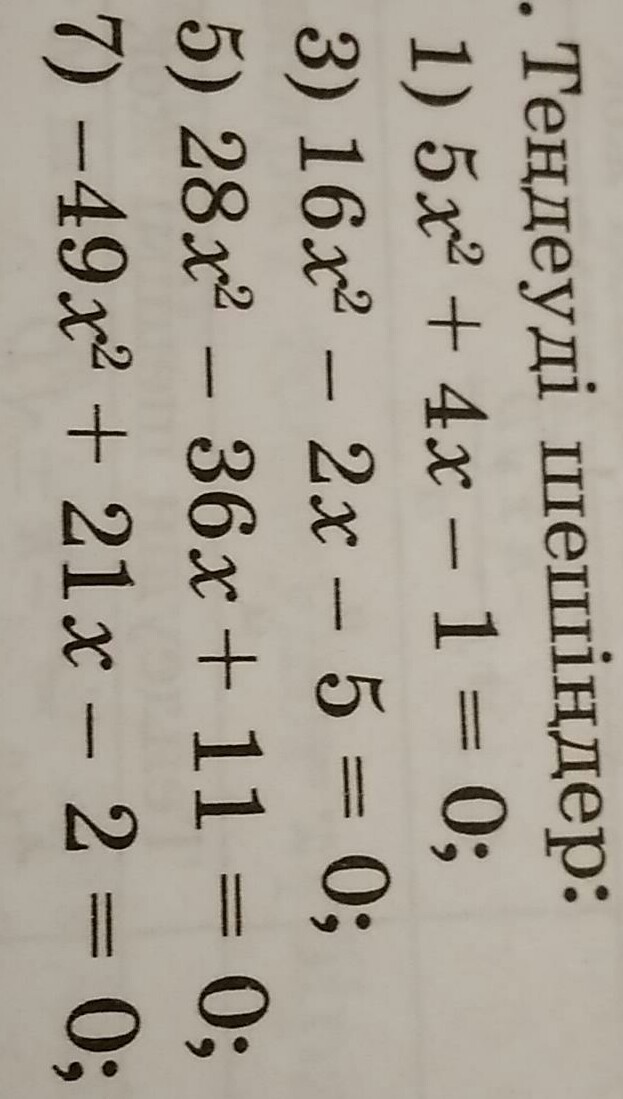 . Теңдеуді шешіңдер:
1) 5x² + 4x − 1 = 0;
3) 16x² − 2x − 5 = 0;
5) 28x² − 36x + 11 = 0;
7) −49x² + 21x − 2 = 0;